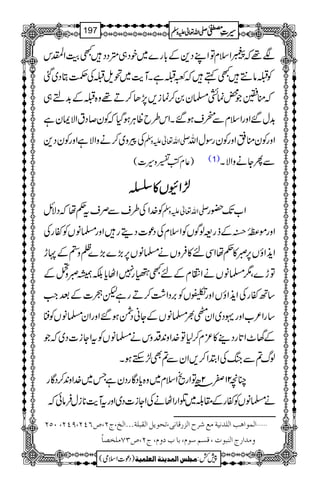 سیرتِ مصطفیٰ صلی اللہ تعالیٰ علیہ وسلم 197
لگے تھے کہ پیغمبر اسلام تو اپنے دین کے بارے میں خود ہی متردد ہیں کبھی بیت المقدس
کو قبلہ مانتے ہیں کبھی کہتے ہیں کہ کعبہ قبلہ ہے۔ آیت میں تحویل قبلہ کی حکمت بتا دی گئی
کہ منافقین جو محض نمائشی مسلمان بن کر نمازیں پڑھا کرتے تھے وہ قبلہ کے بدلتے ہی
بدل گئے اور اسلام سے منحرف ہو گئے۔ اس طرح ظاہر ہو گیا کہ کون صادق الایمان ہے
اور کون منافق اور کون رسول اللہ صلی اللہ تعالیٰ علیہ وسلم کی پیروی کرنے والا ہے اور کون دین
سے پھر جانے والا۔ (1) (عام کتب تفسیر و سیرت)
لڑائیوں کا سلسلہ
اب تک حضور صلی اللہ تعالیٰ علیہ وسلم کو خدا کی طرف سے صرف یہ حکم تھا کہ دلائل
اور موعظۂ حسنہ کے ذریعہ لوگوں کو اسلام کی دعوت دیتے رہیں اور مسلمانوں کو کفار کی
ایذاؤں پر صبر کا حکم تھا اسی لئے کافروں نے مسلمانوں پر بڑے بڑے ظلم و ستم کے پہاڑ
توڑے، مگر مسلمانوں نے انتقام کے لئے کبھی ہتھیار نہیں اٹھایا بلکہ ہمیشہ صبر و تحمل کے
ساتھ کفار کی ایذاؤں اور تکلیفوں کو برداشت کرتے رہے لیکن ہجرت کے بعد جب
سارا عرب اور یہودی ان مٹھی بھر مسلمانوں کے جانی دشمن ہو گئے اور ان مسلمانوں کو فنا
کے گھاٹ اتار دینے کا عزم کر لیا تو خداوند قدوس نے مسلمانوں کو یہ اجازت دی کہ جو
لوگ تم سے جنگ کی ابتدا کریں ان سے تم بھی لڑ سکتے ہو۔
چنانچہ ۱۲ صفر ۲ھ تواریخ اسلام میں وہ یادگار دن ہے جس میں خداوند کردگار
نے مسلمانوں کو کفار کے مقابلہ میں تلوار اٹھانے کی اجازت دی اور یہ آیت نازل فرمائی کہ
.....المواهب اللدنية مع شرح الزرقانى،تحويل القبلة...الخ،ج٢،ص٢٤٦،٢٤٩، ٢٥٠
ومدارج النبوت ، قسم سوم، باب دوم، ج٢،ص٧٣ملخصاً
پیش کش: مجلس المدينة العلمية (دعوتِ اسلامی)